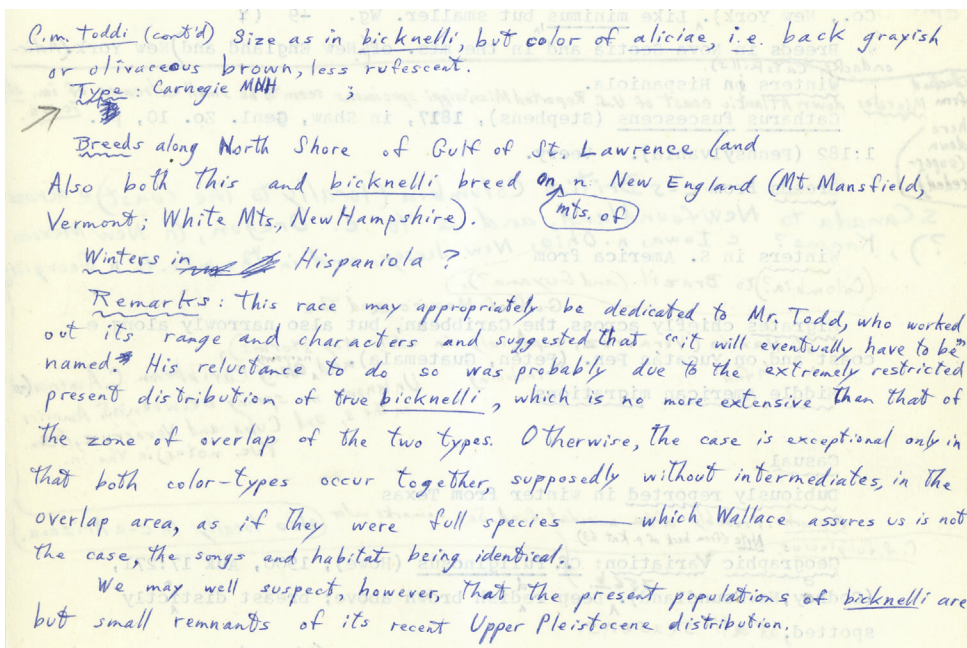 C.m. toddi (cont'd) Size as in bicknelli, but color of aliciae, i.e. back grayish
or olivaceous brown, less rufescent.
Type: Carnegie MNH ;
Breeds along North Shore of Gulf of St. Lawrence (and
Also both this and bicknelli breed on n. New England (Mt. Mansfield,
mts. of
Vermont; White Mts., New Hampshire).
Winters in Hispaniola ?
Remarks: This race may appropriately be dedicated to Mr. Todd, who worked
out its range and characters and suggested that "it will eventually have to be"
named. His reluctance to do so was probably due to the extremely restricted
present distribution of true bicknelli, which is no more extensive than that of
the zone of overlap of the two types. Otherwise, the case is exceptional only in
that both color-types occur together, supposedly without intermediates, in the
overlap area, as if they were full species — which Wallace assures us is not
the case, the songs and habitat being identical.
We may well suspect, however, that the present populations of bicknelli are
but small remnants of its recent Upper Pleistocene distribution.